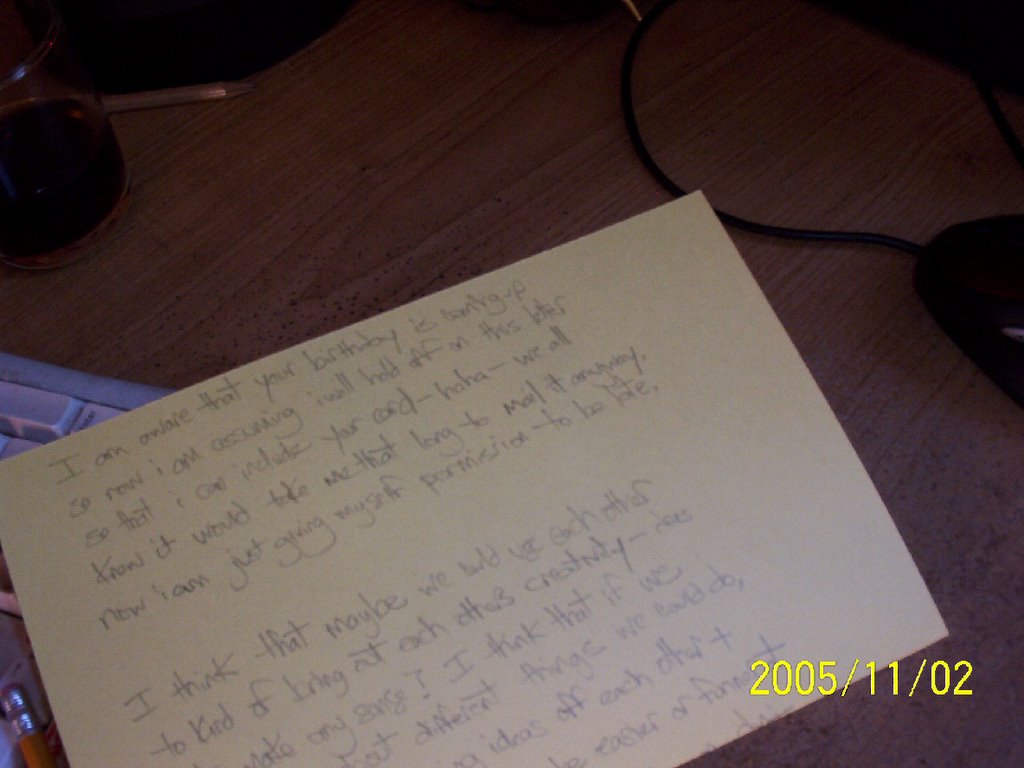 I am aware that your birthday is coming up
so now i am assuming i will hold off on this letter
so that i can include your card - haha - we all
know it would take me that long to mail it anyway.
now i am just giving myself permission to be late.
I think that maybe we could use each other
to kind of bring out each others creativity - does
make any sense? I think that if we
different things we could do,
ideas off each other +
easier or funner +
2005/11/02